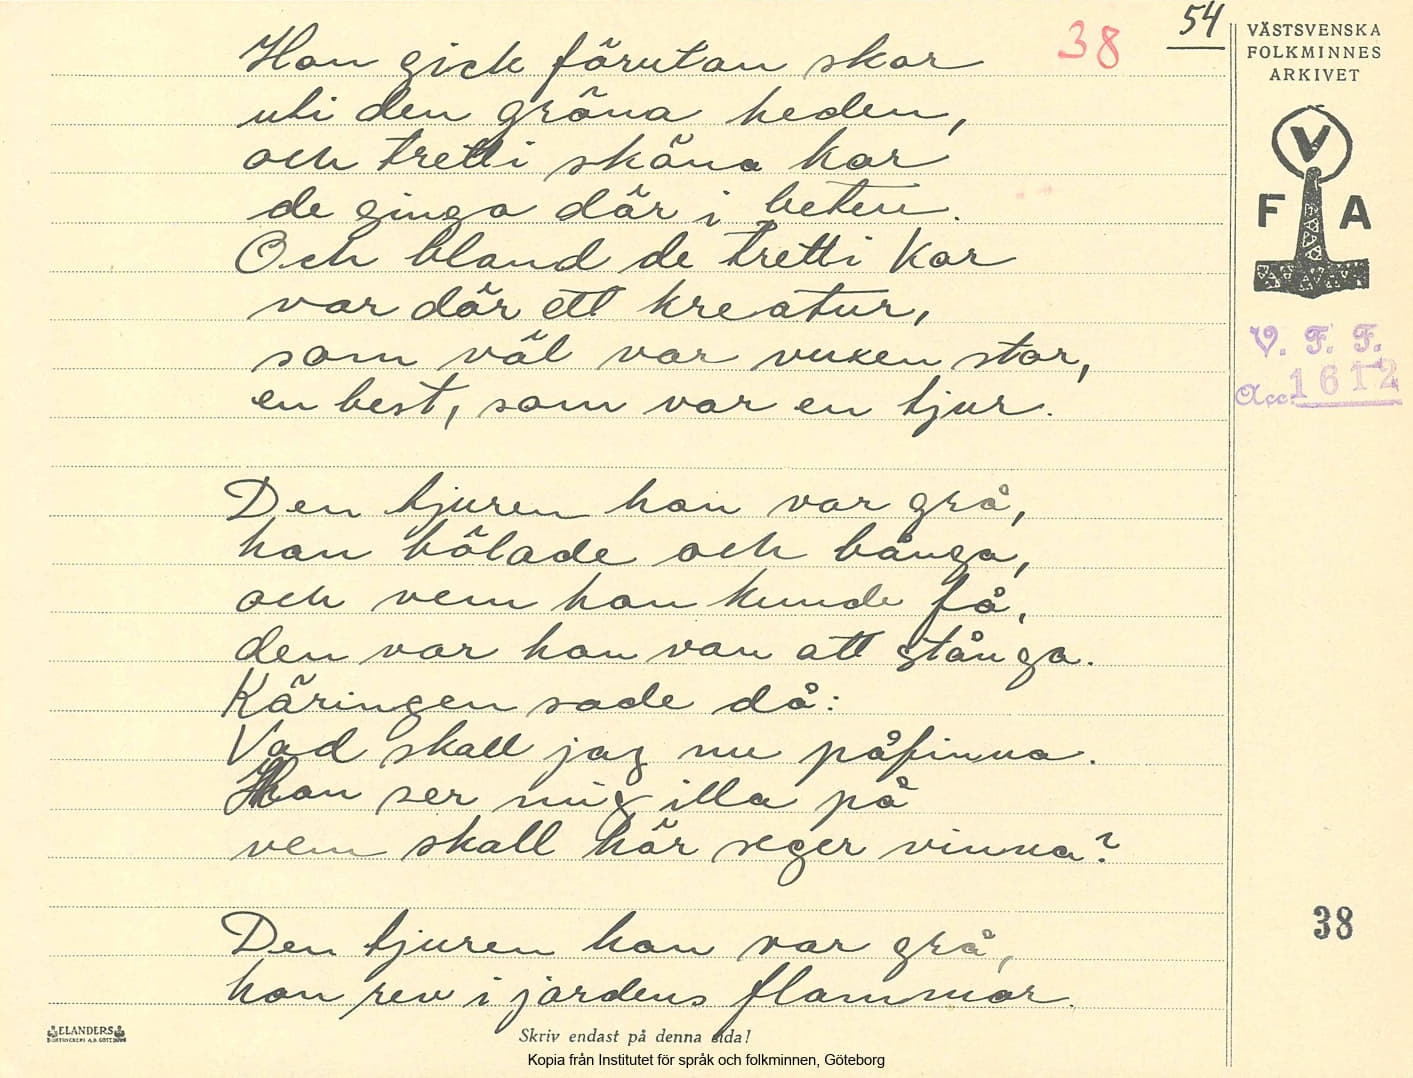 54
38
VÄSTSVENSKA
FOLKMINNES
ARKIVET
V
F A
V. F. F.
Acc. 1612
Hon gick förutan skor
uti den gröna heden,
och tretti sköna kor
de ginga där i beten.
Och bland de tretti kor
var där ett kreatur,
som väl var vuxen stor,
en best, som var en tjur.
Den tjuren han var grå,
han bölade och bånga,
och vem han kunde få,
den var han van att stånga.
Käringen sade då:
Vad skall jag nu påfinna.
Han ser mig illa på
vem skall här seger vinna?
38
Den tjuren han var grå,
han rev i jordens flammor.
ELANDERS
Skriv endast på denna sida!
Kopia från Institutet för språk och folkminnen, Göteborg